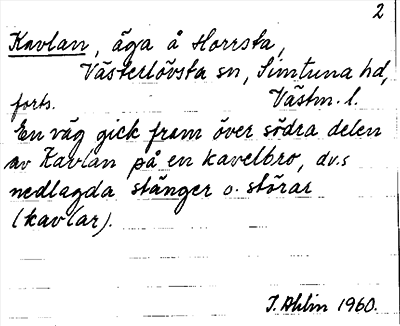 2
Kavlan, äga å Horrsta,
Västerlövsta sn, Simtuna hd,
forts. Västm. l.
En väg gick fram över södra delen
av Kavlan på en kavelbro, dvs
nedlagda stänger o. störar
(kavlar).
I. Ahlin 1960.